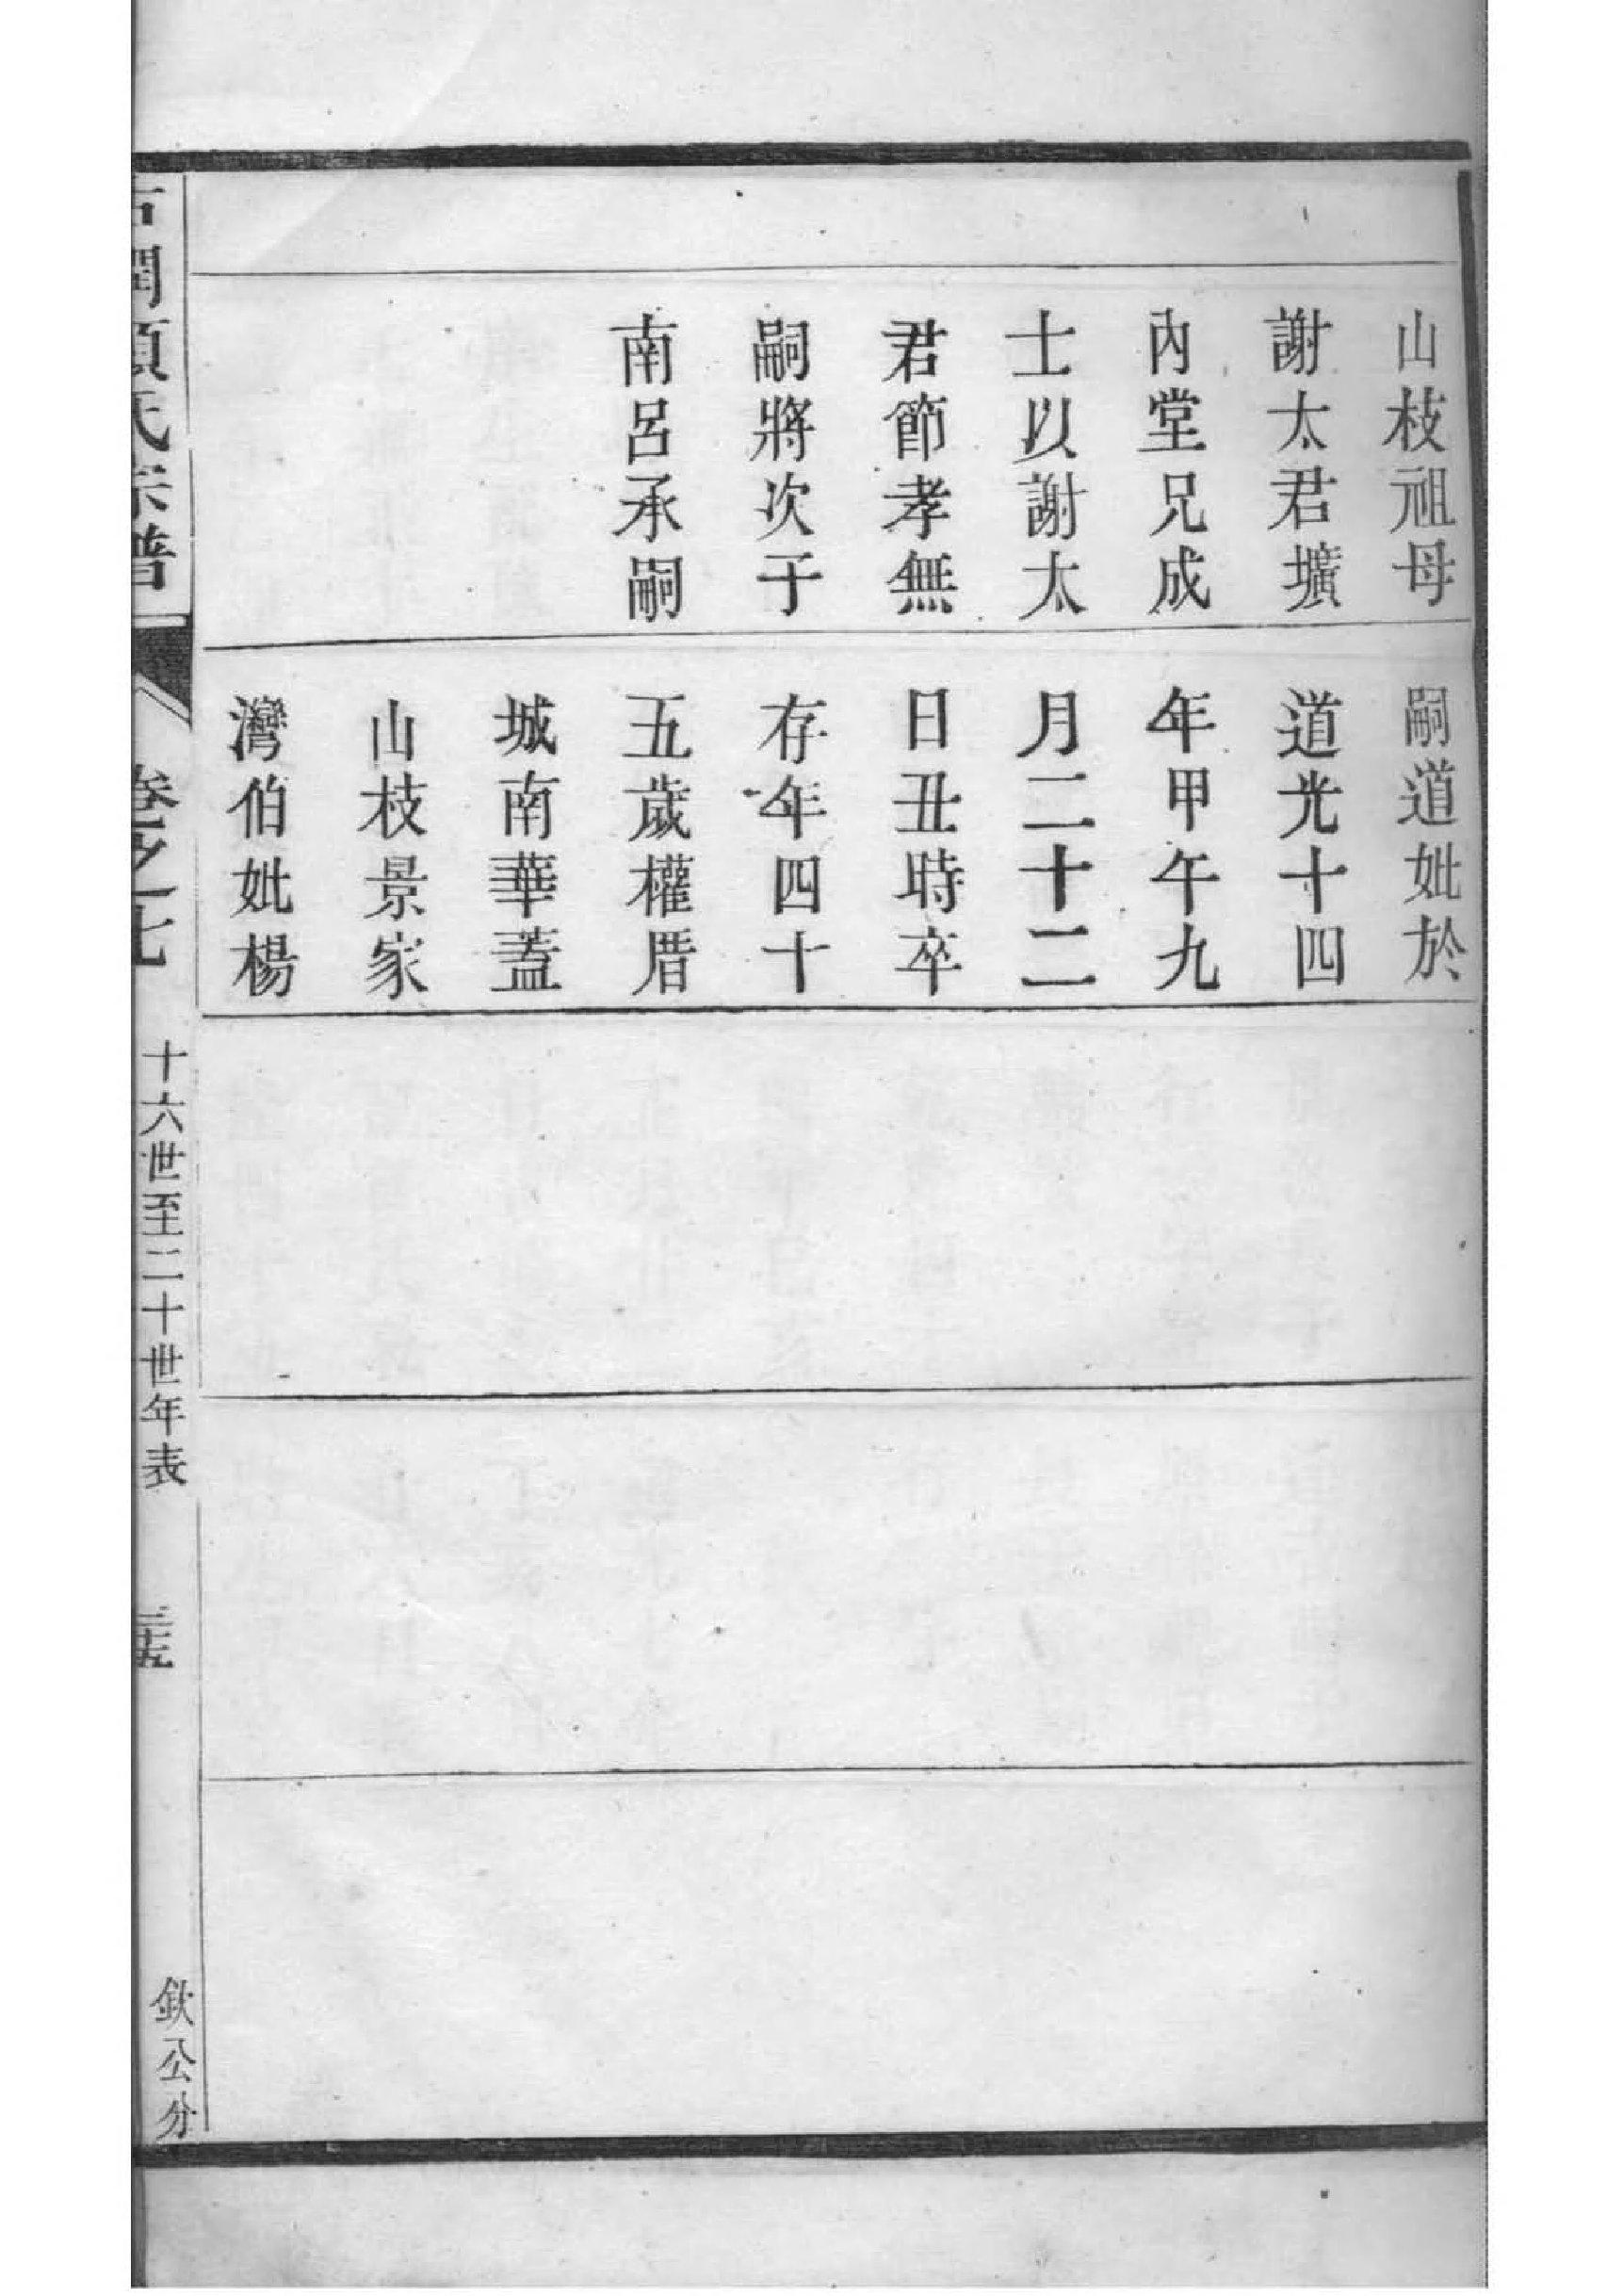 山枝祖母
謝太君壙
內堂兄成
士以謝太
君節孝無
嗣將次子
南呂承嗣
嗣道妣於
道光十四
年甲午九
月二十二
日丑時卒
存年四十
五歲權厝
城南華蓋
山枝景家
灣伯妣楊
澗項氏宗譜
卷之七
十六世至二十世年表
欽公分